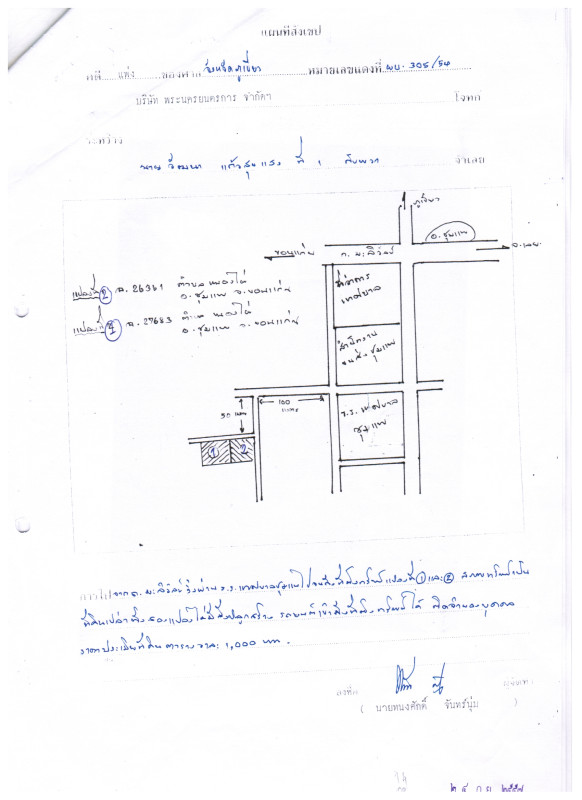 แผนที่สังเขป
คดี แห่ง ของศาล จังหวัดภูเขียว หมายเลขแดงที่ ผบ. 305/54
บริษัท พระนครยนตรการ จำกัดฯ โจทก์
ระหว่าง
นาย วัฒนา แก้วสุขแสง ที่ 1 กับพวก จำเลย
ภูเขียว
อ. ชุมแพ
ขอนแก่น
ถ. มะลิวัลย์
จ. เลย
แปลงที่ 2 ฉ. 26361 ตำบล หนองไผ่
อ. ชุมแพ จ. ขอนแก่น
แปลงที่ 1 ฉ. 27683 ตำบล หนองไผ่
อ. ชุมแพ จ. ขอนแก่น
ที่ทำการ
เทศบาล
สำนักงาน
ขนส่ง ชุมแพ
50 เมตร
100
เมตร
ร.ร. เทศบาล
ชุมแพ
1 2
การไป จาก ถ. มะลิวัลย์ วิ่งผ่าน ร.ร. เทศบาลชุมแพ ไปจนถึงที่ตั้งทรัพย์แปลงที่ 1 และ 2 สภาพทรัพย์เป็น
ที่ดินเปล่าทั้งสองแปลง ไม่มีสิ่งปลูกสร้าง รถยนต์เข้าถึงที่ตั้งทรัพย์ได้ ติดจำนองบุคคล
ราคาประเมินที่ดิน ตารางวาละ 1,000 บาท.
ลงชื่อ
( นายทนงศักดิ์ จันทร์นุ่ม )
๒๔ ก.ย. ๒๕๕๗